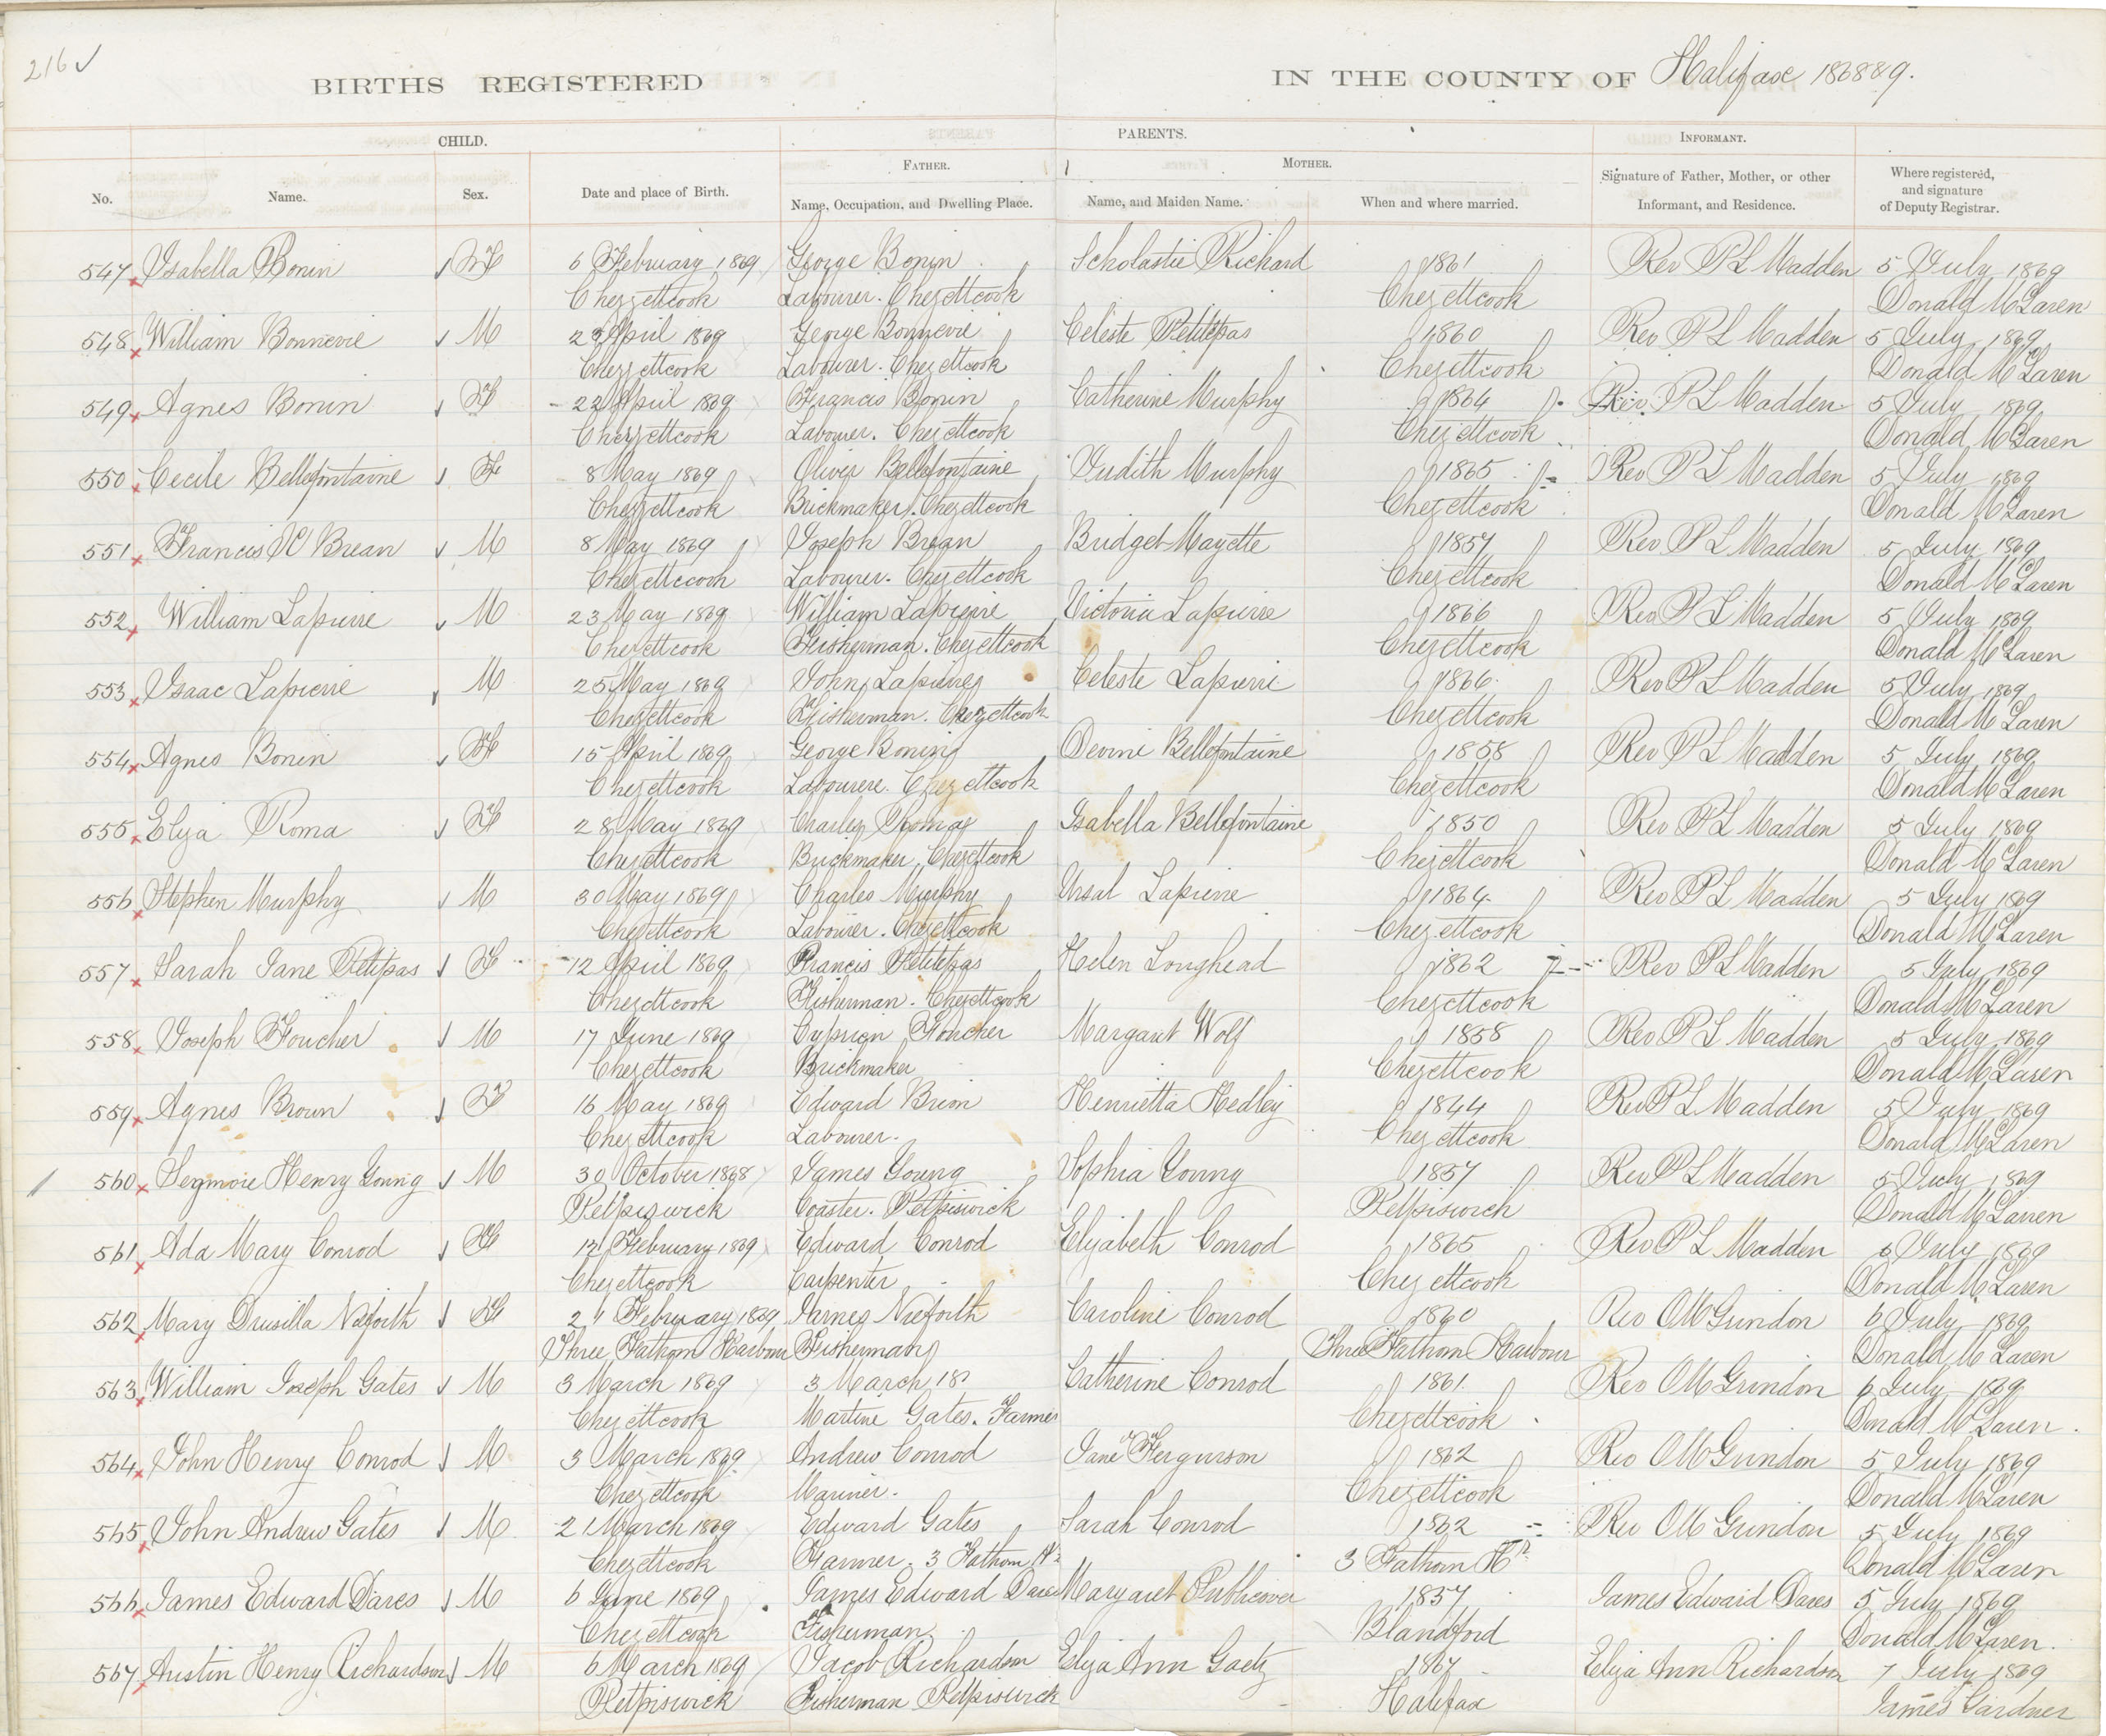 216 ✓
BIRTHS REGISTERED IN THE COUNTY OF Halifax 1868&9.
CHILD. PARENTS. INFORMANT.
FATHER. MOTHER.
No. Name. Sex. Date and place of Birth. Name, Occupation, and Dwelling Place. Name, and Maiden Name. When and where married. Signature of Father, Mother, or other Informant, and Residence. Where registered, and signature of Deputy Registrar.
547 Isabella Bonin F 6 February 1869 George Bonin Scholastie Richard 1861 Rev P L Madden 5 July 1869
Chezzettcook Labourer. Chezettcook Chezettcook Donald McLaren
548 William Bonnevie M 23 April 1869 George Bonnevie Celeste Petitpas 1860 Rev P L Madden 5 July 1869
Chezzettcook Labourer. Chezettcook Chezettcook Donald McLaren
549 Agnes Bonin F 22 April 1869 Francis Bonin Catherine Murphy 1864 Rev P L Madden 5 July 1869
Chezzettcook Labourer. Chezettcook Chezettcook Donald McLaren
550 Cecile Bellefontaine F 8 May 1869 Olivir Bellefontaine Judith Murphy 1865 Rev P L Madden 5 July 1869
Chezzettcook Brickmaker. Chezettcook Chezettcook Donald McLaren
551 Francis W Brean M 8 May 1869 Joseph Brean Bridget Mayette 1857 Rev P L Madden 5 July 1869
Chezettcook Labourer. Chezettcook Chezettcook Donald McLaren
552 William Lapierre M 23 May 1869 William Lapierre Victoria Lapierre 1866 Rev P L Madden 5 July 1869
Chezettcook Fisherman. Chezettcook Chezettcook Donald McLaren
553 Isaac Lapierre M 25 May 1869 John Lapierre Celeste Lapierre 1866 Rev P L Madden 5 July 1869
Chezettcook Fisherman. Chezettcook Chezettcook Donald McLaren
554 Agnes Bonin F 15 April 1869 George Bonin Devine Bellefontaine 1858 Rev P L Madden 5 July 1869
Chezettcook Labourere. Chezettcook Chezettcook Donald McLaren
555 Eliza Roma F 28 May 1869 Charles Romas Isabella Bellefontaine 1850 Rev P L Madden 5 July 1869
Chezettcook Brickmaker, Chezettcook Chezettcook Donald McLaren
556 Stephen Murphy M 30 May 1869 Charles Murphy Ursal Lapierre 1864 Rev P L Madden 5 July 1869
Chezettcook Labourer. Chezettcook Chezettcook Donald McLaren
557 Sarah Jane Petitpas F 12 April 1869 Francis Petitpas Helen Loughead 1862 Rev P L Madden 5 July 1869
Chezettcook Fisherman. Chezettcook Chezettcook Donald McLaren
558 Joseph Foucher M 17 June 1869 Cyprien Foucher Margaret Wolf 1858 Rev P L Madden 5 July 1869
Chezettcook Brickmaker Chezettcook Donald McLaren
559 Agnes Brown F 16 May 1869 Edward Brion Henrietta Hedley 1844 Rev P L Madden 5 July 1869
Chezettcook Labourer. Chezettcook Donald McLaren
560 Seymore Henry Young M 30 October 1868 James Young Sophia Young 1857 Rev P L Madden 5 July 1869
Petpiswick Coaster. Petpiswick Petpiswich Donald McLaren
561 Ada Mary Conrod F 12 February 1869 Edward Conrod Elizabeth Conrod 1865 Rev P L Madden 5 July 1869
Chezettcook Carpenter Chezettcook Donald McLaren
562 Mary Drusilla Nieforth F 24 February 1869 James Nieforth Caroline Conrod 1860 Rev O M Grindon 6 July 1869
Three Fathom Harbour Fisherman Three Fathom Harbour Donald McLaren
563 William Joseph Gates M 3 March 1869 3 March 18 Catherine Conrod 1861 Rev O M Grindon 6 July 1869
Chezettcook Martine Gates. Farmer Chezettcook. Donald McLaren.
564 John Henry Conrod M 3 March 1869 Andrew Conrod Jane Fergurson 1862 Rev O M Grindon 5 July 1869
Chezettcook Mariner. Chezettcook Donald McLaren
565 John Andrew Gates M 21 March 1869 Edward Gates Sarah Conrod 1862 Rev O M Grindon 5 July 1869
Chezettcook Farmer. 3 Fathom Hr 3 Fathom Hr Donald McLaren
566 James Edward Dares M 6 June 1869 James Edward Dares Margaret Publicover 1857 James Edward Dares 5 July 1869
Chezettcook Fisherman Blandford Donald McLaren.
567 Austin Henry Richardson M 6 March 1869 Jacob Richardson Eliza Ann Gaetz 1867 Eliza Ann Richardson 7 July 1869
Petpiswick Fisherman Petpiswick Halifax James Gardner